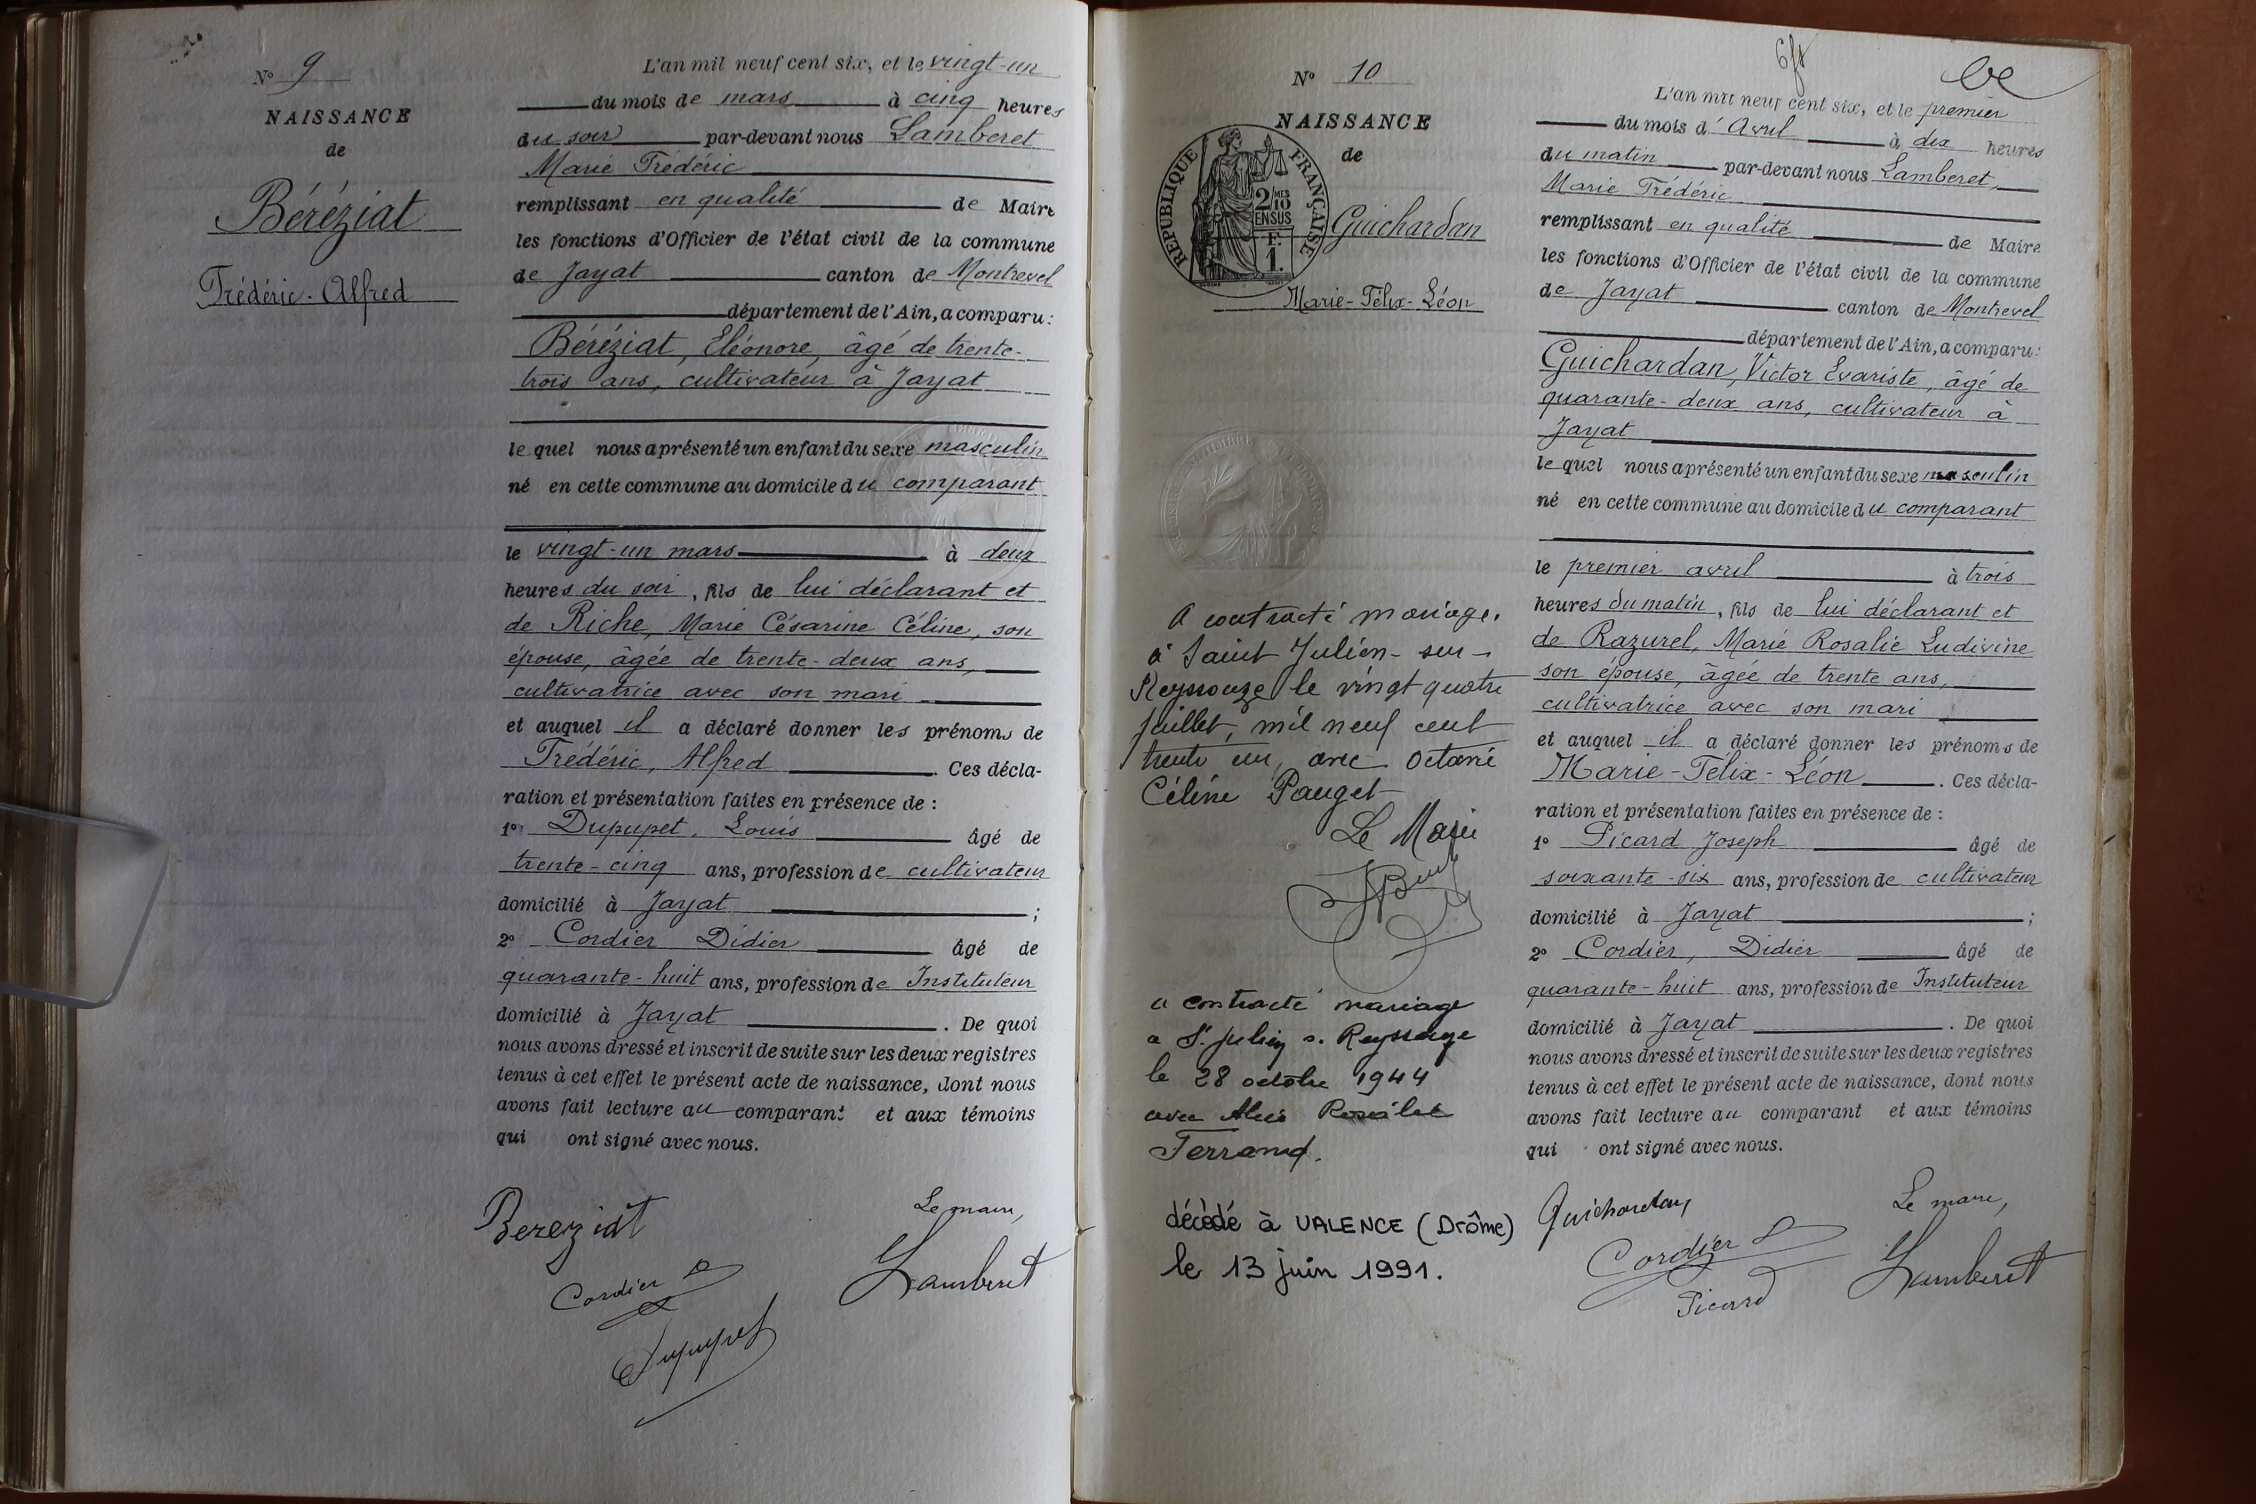 N° 9
NAISSANCE
de
Béréziat
Frédéric-Alfred
L'an mil neuf cent six, et le vingt-un
du mois de mars à cinq heures
du soir par-devant nous Lamberet
Marie Frédéric
remplissant en qualité de Maire
les fonctions d'Officier de l'état civil de la commune
de Jayat canton de Montrevel
département de l'Ain, a comparu:
Béréziat, Eléonore, âgé de trente-
trois ans, cultivateur à Jayat
le quel nous a présenté un enfant du sexe masculin
né en cette commune au domicile du comparant
le vingt-un mars à deux
heures du soir, fils de lui déclarant et
de Riche, Marie Césarine Céline, son
épouse, âgée de trente-deux ans,
cultivatrice avec son mari
et auquel il a déclaré donner les prénoms de
Frédéric, Alfred. Ces décla-
ration et présentation faites en présence de :
1° Dupupet, Louis âgé de
trente-cinq ans, profession de cultivateur
domicilié à Jayat ;
2° Cordier Didier âgé de
quarante-huit ans, profession de Instituteur
domicilié à Jayat. De quoi
nous avons dressé et inscrit de suite sur les deux registres
tenus à cet effet le présent acte de naissance, dont nous
avons fait lecture au comparant et aux témoins
qui ont signé avec nous.
Bereziat
Le maire,
Cordier D
Lamberet
Dupupet
N° 10
NAISSANCE
de
RÉPUBLIQUE FRANÇAISE
2/10 MES
EN SUS
F.
1.
Guichardan
Marie-Félix-Léon
A contracté mariage
à Saint Julien-sur-
Reyssouze le vingt quatre
juillet, mil neuf cent
trente un, avec Octavie
Céline Pauget
Le Maire
a contracté mariage
a St. Julien s. Reyssouze
le 28 octobre 1944
avec Alice
Ferrand.
décédé à VALENCE (Drôme)
le 13 juin 1991.
L'an mil neuf cent six, et le premier
du mois d'Avril à dix heures
du matin par-devant nous Lamberet,
Marie Frédéric
remplissant en qualité de Maire
les fonctions d'Officier de l'état civil de la commune
de Jayat canton de Montrevel
département de l'Ain, a comparu:
Guichardan, Victor Evariste, âgé de
quarante-deux ans, cultivateur à
Jayat
le quel nous a présenté un enfant du sexe masculin
né en cette commune au domicile du comparant
le premier avril à trois
heures du matin, fils de lui déclarant et
de Razurel, Marie Rosalie Ludivine
son épouse, âgée de trente ans,
cultivatrice avec son mari
et auquel il a déclaré donner les prénoms de
Marie-Félix-Léon. Ces décla-
ration et présentation faites en présence de :
1° Picard Joseph âgé de
soixante-six ans, profession de cultivateur
domicilié à Jayat ;
2° Cordier, Didier âgé de
quarante-huit ans, profession de Instituteur
domicilié à Jayat. De quoi
nous avons dressé et inscrit de suite sur les deux registres
tenus à cet effet le présent acte de naissance, dont nous
avons fait lecture au comparant et aux témoins
qui ont signé avec nous.
Guichardan
Le maire,
Cordier D
Lamberet
Picard